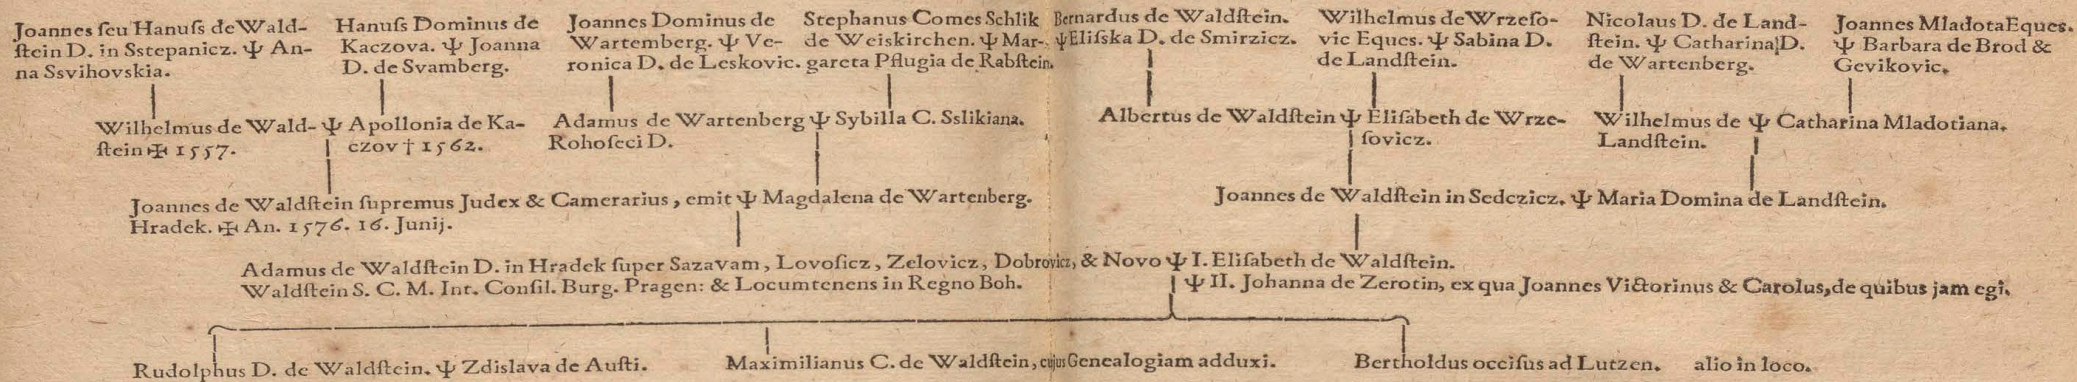 Joannes ſeu Hanuſs de Wald-
ſtein D. in Sstepanicz. Ψ An-
na Ssvihovskia.
Hanuſs Dominus de
Kaczova. Ψ Joanna
D. de Svamberg.
Joannes Dominus de
Wartemberg. Ψ Ve-
ronica D. de Leskovic.
Stephanus Comes Schlik
de Weiskirchen. Ψ Mar-
gareta Pflugia de Rabſtein.
Bernardus de Waldſtein.
Ψ Eliſska D. de Smirzicz.
Wilhelmus de Wrzeſo-
vic Eques. Ψ Sabina D.
de Landſtein.
Nicolaus D. de Land-
ſtein. Ψ Catharina D.
de Wartenberg.
Joannes Mladota Eques.
Ψ Barbara de Brod &
Gevikovic.
Wilhelmus de Wald- Ψ Apollonia de Ka-
ſtein ✠ 1557. czov † 1562.
Adamus de Wartenberg Ψ Sybilla C. Sslikiana.
Rohoſeci D.
Albertus de Waldſtein Ψ Eliſabeth de Wrze-
ſovicz.
Wilhelmus de Ψ Catharina Mladotiana.
Landſtein.
Joannes de Waldſtein ſupremus Judex & Camerarius, emit Ψ Magdalena de Wartenberg.
Hradek. ✠ An. 1576. 16. Junij.
Joannes de Waldſtein in Sedczicz. Ψ Maria Domina de Landſtein.
Adamus de Waldſtein D. in Hradek ſuper Sazavam, Lovoſicz, Zelovicz, Dobrovicz, & Novo Ψ I. Eliſabeth de Waldſtein.
Waldſtein S. C. M. Int. Conſil. Burg. Pragen: & Locumtenens in Regno Boh. Ψ II. Johanna de Zerotin, ex qua Joannes Victorinus & Carolus, de quibus jam egi.
Rudolphus D. de Waldſtein. Ψ Zdislava de Auſti. Maximilianus C. de Waldſtein, cujus Genealogiam adduxi. Bertholdus occiſus ad Lutzen. alio in loco.